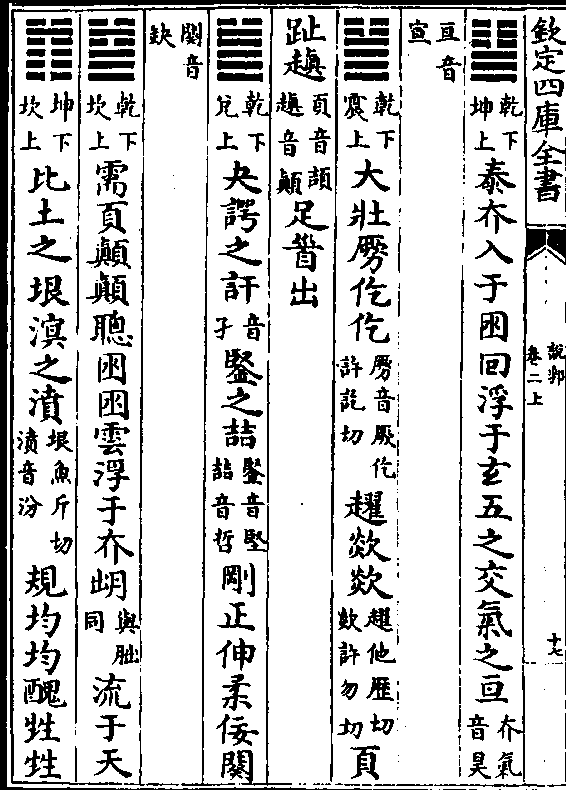 欽定四庫全書
說郛
卷二上
十七
乾下
坤上
泰夰入于囦回浮于玄五之交氣之亘
夰氣
音昊
亘音
宣
乾下
震上
大壯㽹仡仡
㽹音厥仡
許訖切
趯欻欻
趯他歷切
欻許勿切
頁
趾趚
頁音頡
音顛
足䇮出
乾下
兌上
夬諤之訐
音
孑
鋻之詰
鋻音堅
詰音哲
剛正伸柔佞闋
闋音
缺
乾下
坎上
需頁顛顛聰囦囦雲浮于夰岄
與朏
同
流于天
坤下
坎上
比土之垠濵之濆
垠魚斤切
濆音汾
規均均醜甡甡